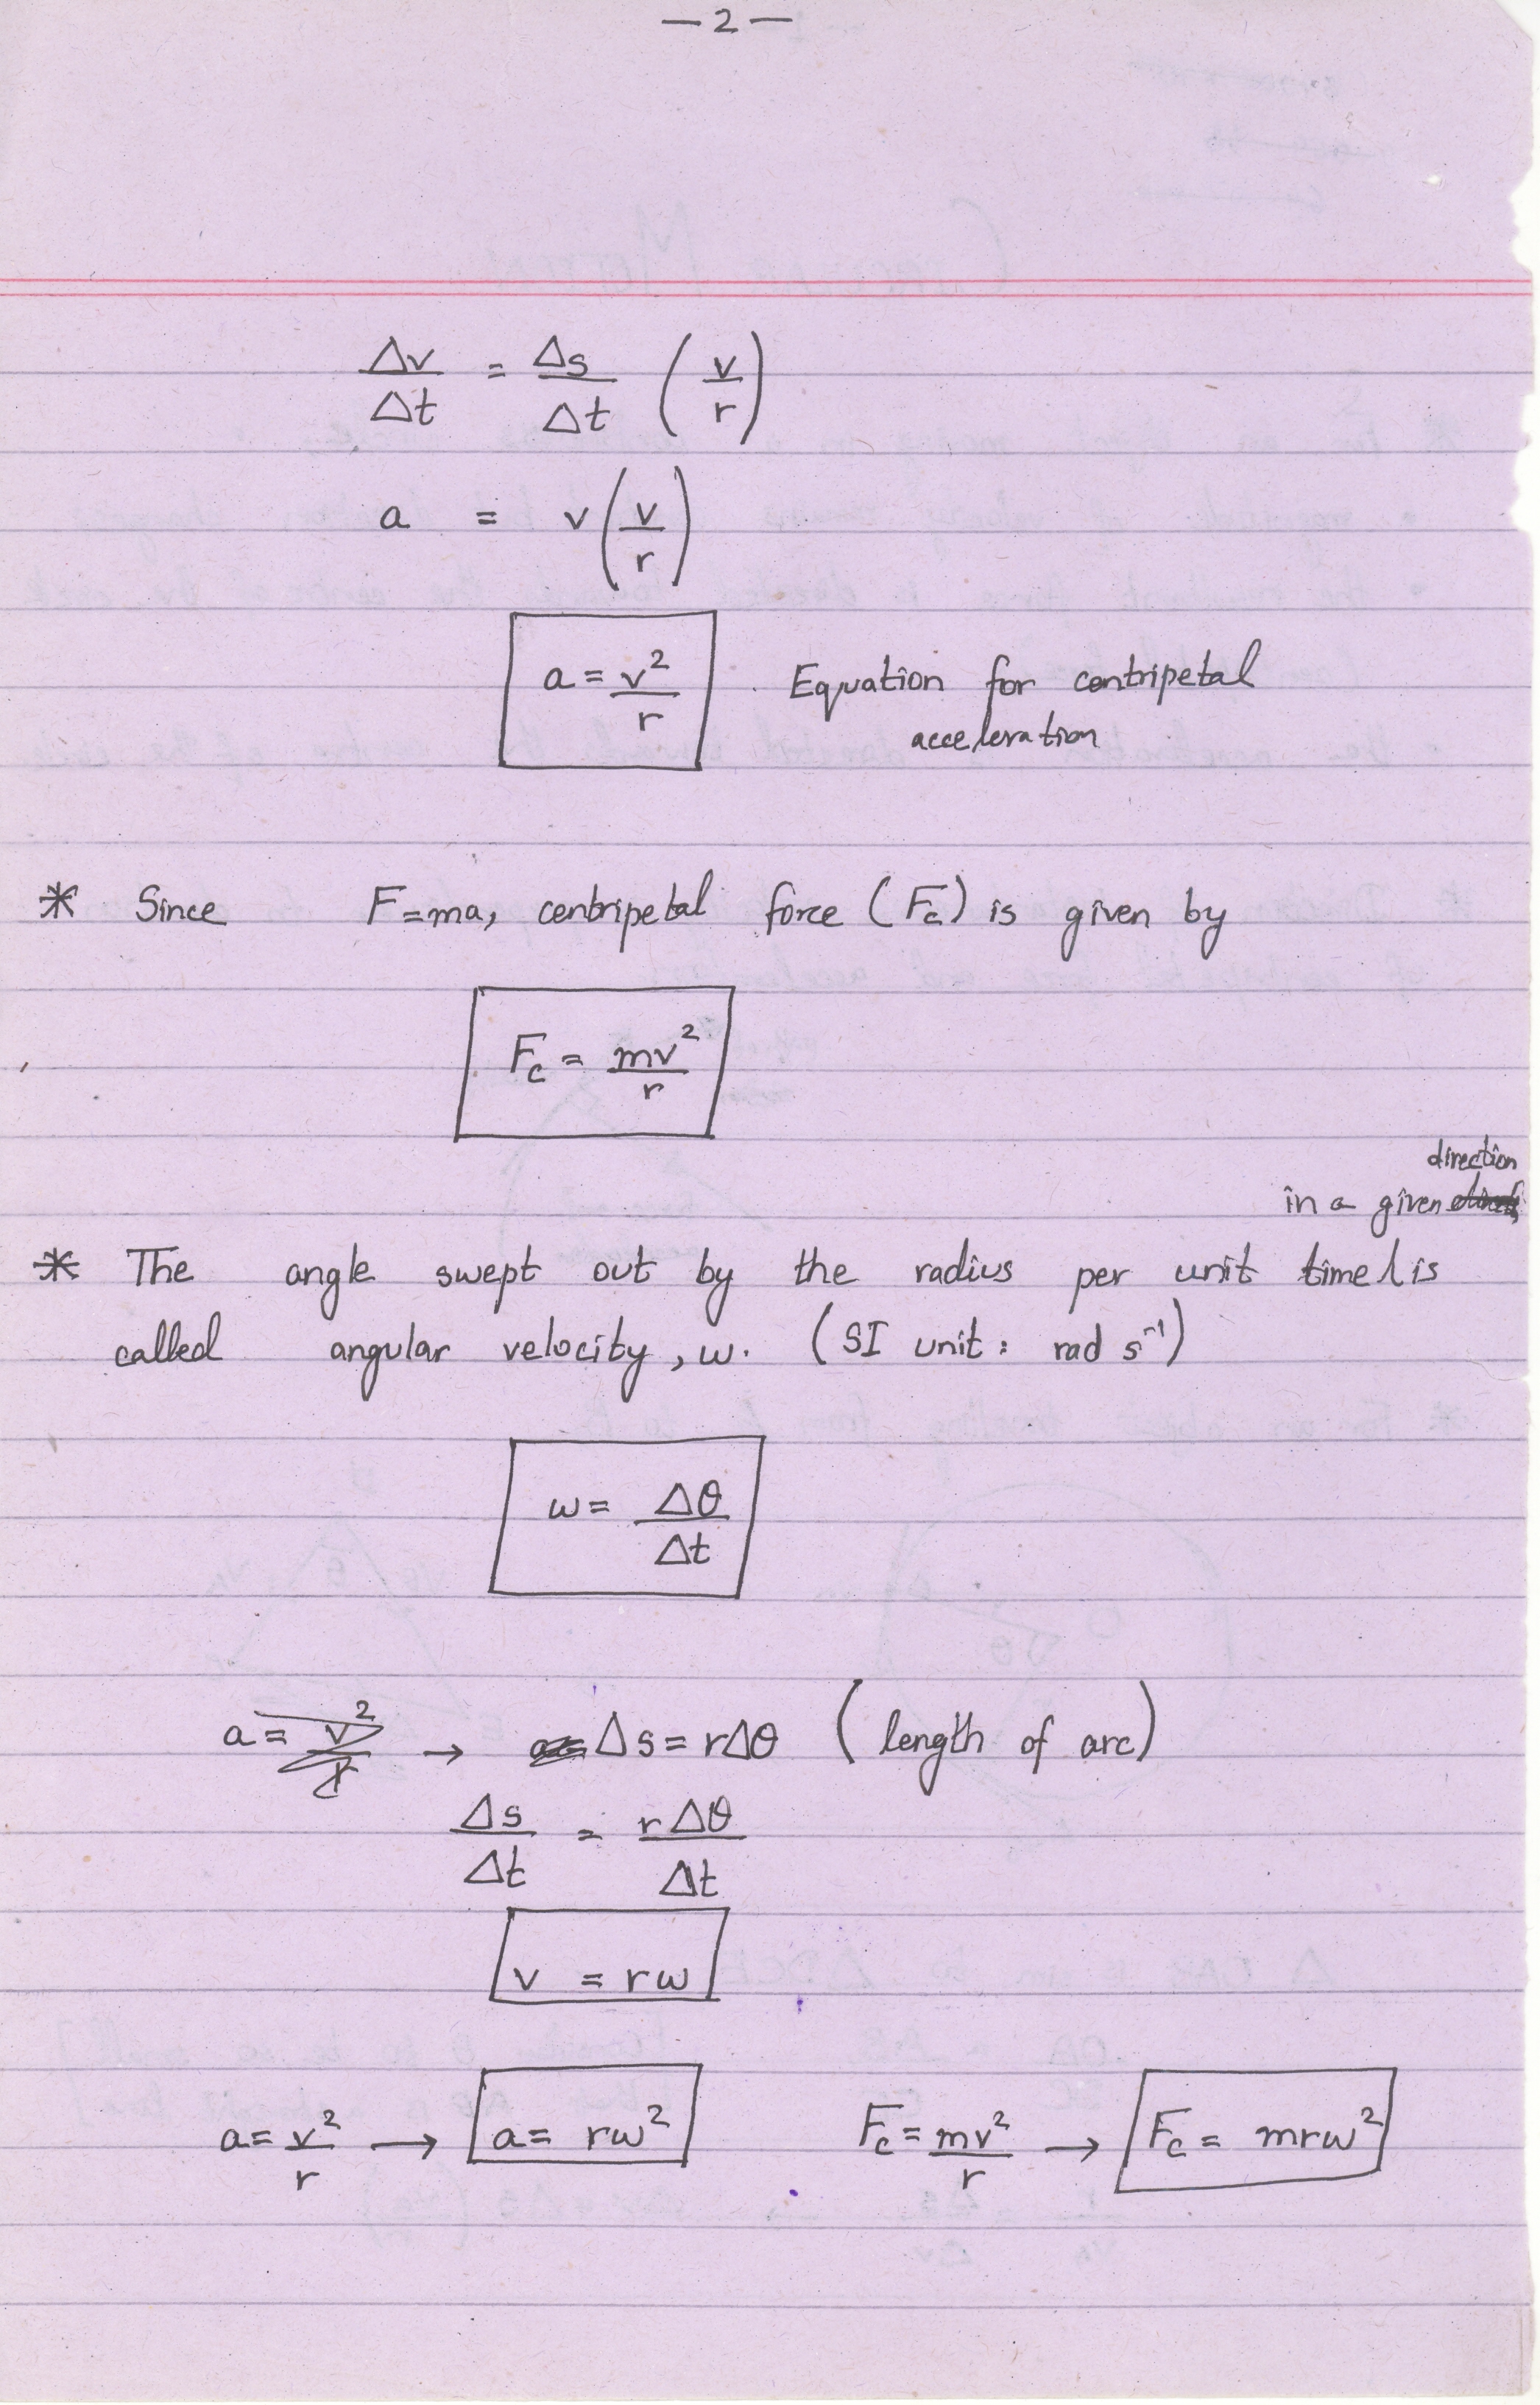 — 2 —
Δv/Δt = Δs/Δt (v/r)
a = v(v/r)
a = v²/r Equation for centripetal
acceleration
* Since F=ma, centripetal force (Fc) is given by
Fc = mv²/r
direction
in a given
* The angle swept out by the radius per unit time is
called angular velocity, ω. (SI unit: rad s⁻¹)
ω = Δθ/Δt
a = v²/r → Δs = rΔθ (length of arc)
Δs/Δt = rΔθ/Δt
v = rω
a = v²/r → a = rω² Fc = mv²/r → Fc = mrω²